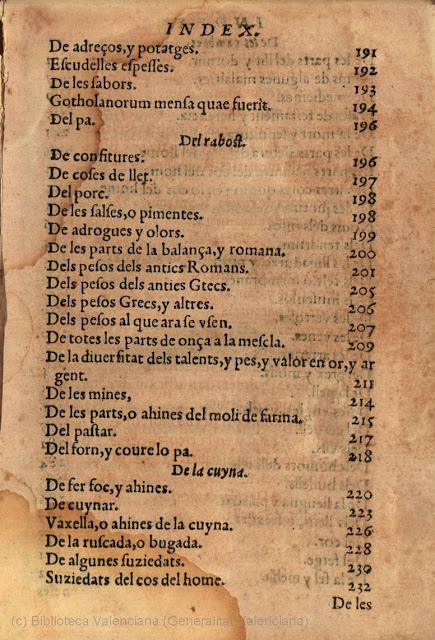 INDEX.
De adreços,y potatges. 191
Escudelles espesses. 192
De les sabors. 193
Gotholanorum mensa quae fuerit. 194
Del pa. 196
Del rabost.
De confitures. 196
De coses de llet. 197
Del porc. 198
De les salses,o pimentes. 198
De adrogues y olors. 199
De les parts de la balança,y romana. 200
Dels pesos dels antics Romans. 201
Dels pesos dels antics Grecs. 205
Dels pesos Grecs,y altres. 206
Dels pesos al que ara se vsen. 207
De totes les parts de onça a la mescla. 209
De la diuersitat dels talents,y pes,y valor en or,y ar
gent. 211
De les mines, 214
De les parts,o ahines del moli de farina. 215
Del pastar. 217
Del forn,y coure lo pa. 218
De la cuyna.
De fer foc,y ahines. 220
De cuynar. 223
Vaxella,o ahines de la cuyna. 226
De la ruscada,o bugada. 228
De algunes suziedats. 230
Suziedats del cos del home. 232
De les
(c) Biblioteca Valenciana (Generalitat Valenciana)